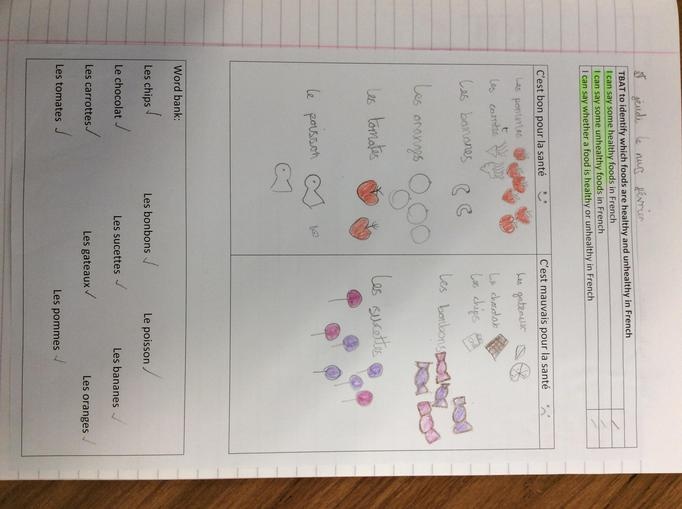 jeudi le neuf février
TBAT to identify which foods are healthy and unhealthy in French
I can say some healthy foods in French
I can say some unhealthy foods in French
I can say whether a food is healthy or unhealthy in French
C'est bon pour la santé
Les pommes
Les carottes
Les bananes
Les oranges
Les tomates
Le poisson
C'est mauvais pour la santé
Les gateaux
Le chocolat
Les chips
Les bonbons
Les sucettes
Word bank:
Les chips Les bonbons Le poisson
Le chocolat Les sucettes Les bananes
Les carrottes Les gateaux Les oranges
Les tomates Les pommes